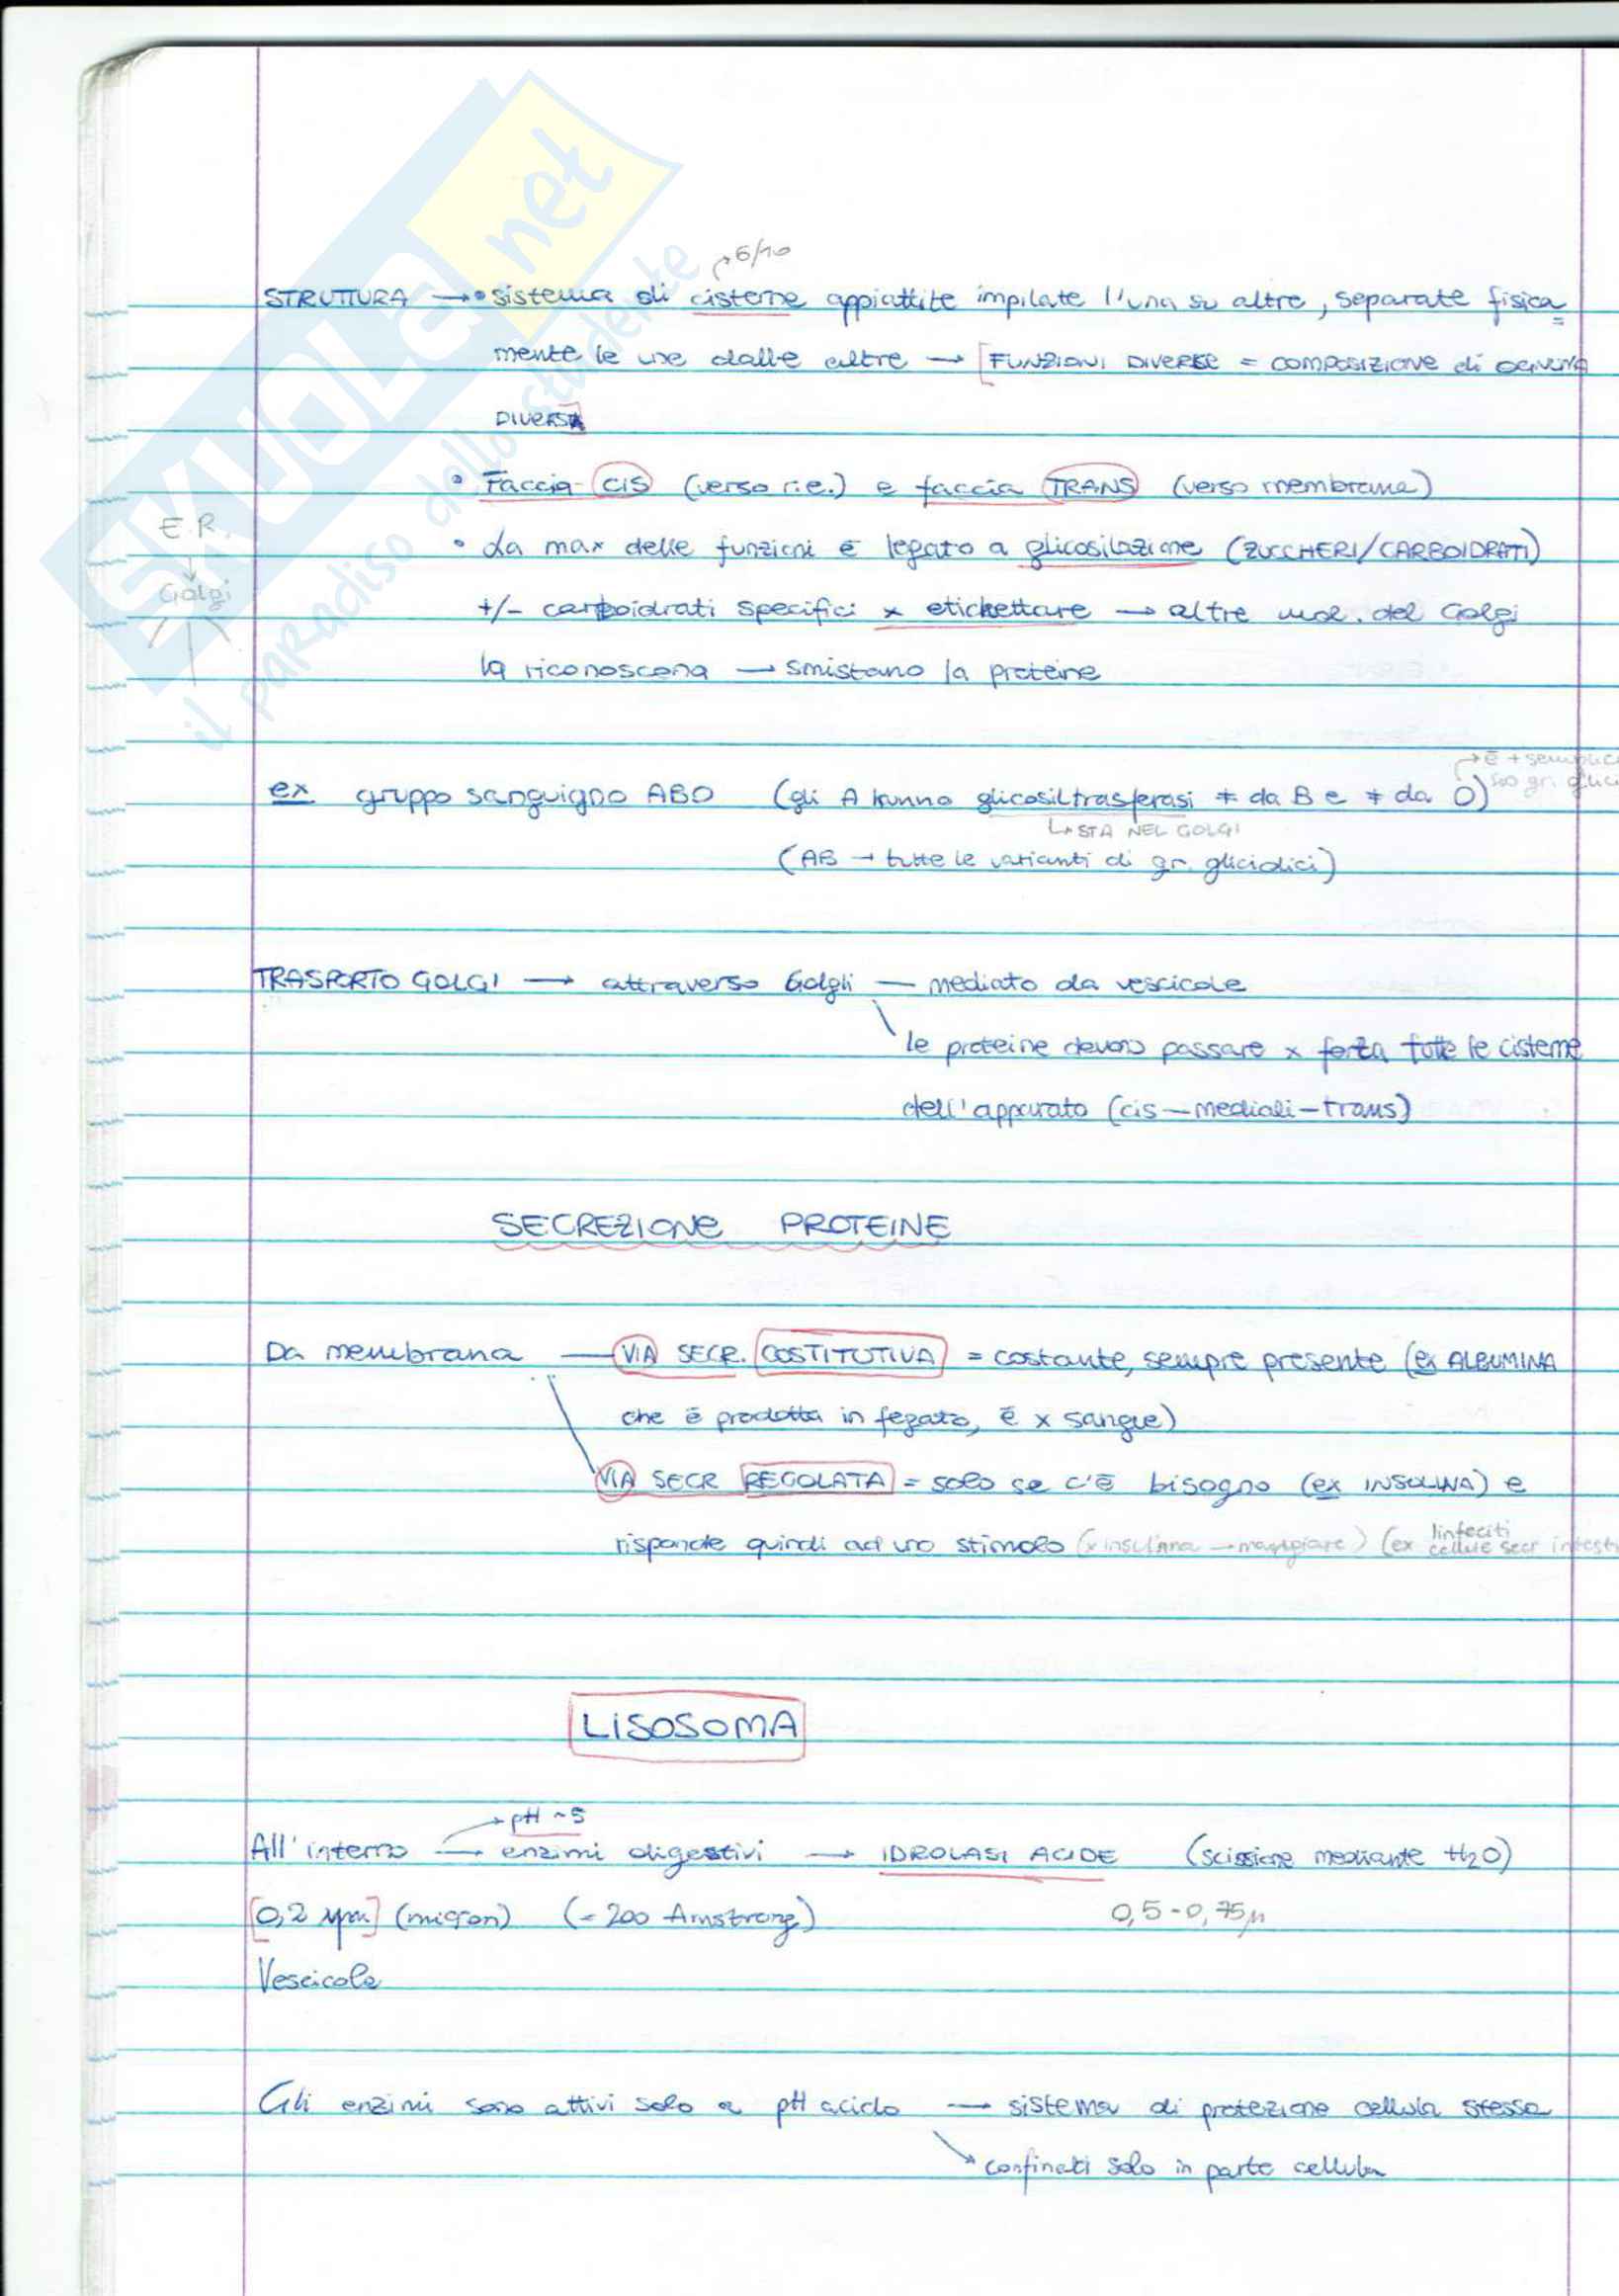 SKUOLA.net
il paradiso dello studente
↗6/10
STRUTTURA →• sistema di cisterne appiattite impilate l'una su altre, separate fisica=
mente le une dalle altre → [FUNZIONI DIVERSE = COMPOSIZIONE di OGNUNA
DIVERSA]
• Faccia CIS (verso r.e.) e faccia TRANS (verso membrana)
E.R.
↓
Golgi
• La max delle funzioni è legato a glicosilazione (ZUCCHERI/CARBOIDRATI)
+/- carboidrati specifici x etichettare → altre mol. del Golgi
la riconoscono → smistano la proteine
→ è + semplice
ex gruppo sanguigno ABO (gli A hanno glicosiltrasferasi ≠ da B e ≠ da 0)
↳ STA NEL GOLGI
(AB → tutte le varianti di gr. glicidici)
TRASPORTO GOLGI → attraverso Golgi — mediato da vescicole
le proteine devono passare x forza tutte le cisterne
dell'apparato (cis–mediali–trans)
SECREZIONE PROTEINE
Da membrana — VIA SECR. COSTITUTIVA = costante, sempre presente (ex ALBUMINA
che è prodotta in fegato, è x sangue)
VIA SECR REGOLATA = solo se c'è bisogno (ex INSULINA) e
risponde quindi ad uno stimolo (x insulina → mangiare) (ex linfociti
cellule secr intest
LISOSOMA
→ pH ~5
All'interno → enzimi digestivi → IDROLASI ACIDE (scissione mediante H₂O)
[0,2 μm] (micron) (= 200 Amstrong) 0,5-0,75μ
Vescicole
Gli enzimi sono attivi solo a pH acido → sistema di protezione cellula stessa
↘ confinati solo in parte cellula